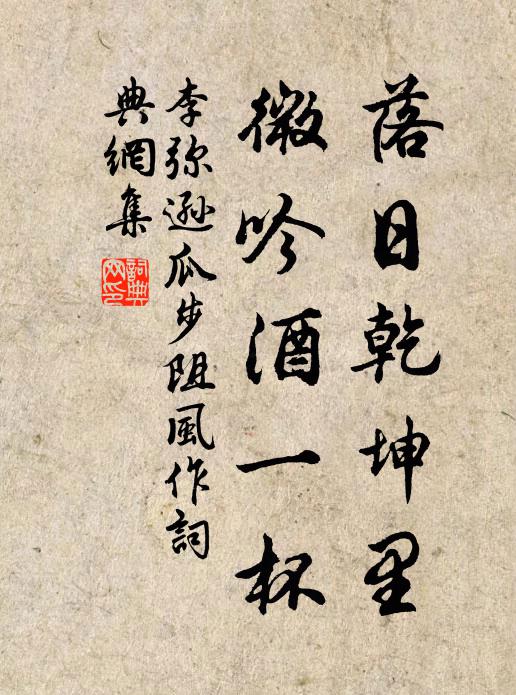 落日乾坤里
微吟酒一杯
李弥遜瓜步阻風作詞
典網集
詞典
网印